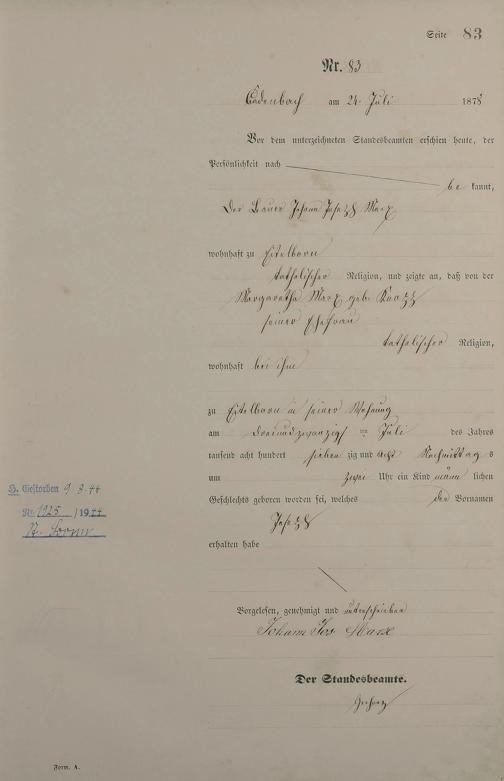 Seite 83
Nr. 83
Cadenbach am 24 Juli 1878
Vor dem unterzeichneten Standesbeamten erschien heute, der
Persönlichkeit nach
be kannt,
Der Bauer Johann Joseph Marx
wohnhaft zu Eitelborn
katholischer Religion, und zeigte an, daß von der
Margaretha Marx geb.
seiner Ehefrau
katholischer Religion,
wohnhaft bei ihm
zu Eitelborn in seiner Wohnung
am Dreiundzwanzigsten Juli des Jahres
tausend acht hundert sieben zig und acht Nachmittag s
um zwei Uhr ein Kind männ lichen
Geschlechts geboren worden sei, welches den Vornamen
Joseph
erhalten habe
Vorgelesen, genehmigt und unterschrieben
Johann Jos Marx
Der Standesbeamte.
Gestorben 9.3.44
Nr. 1925 / 1944
St. Bonn
Form. A.